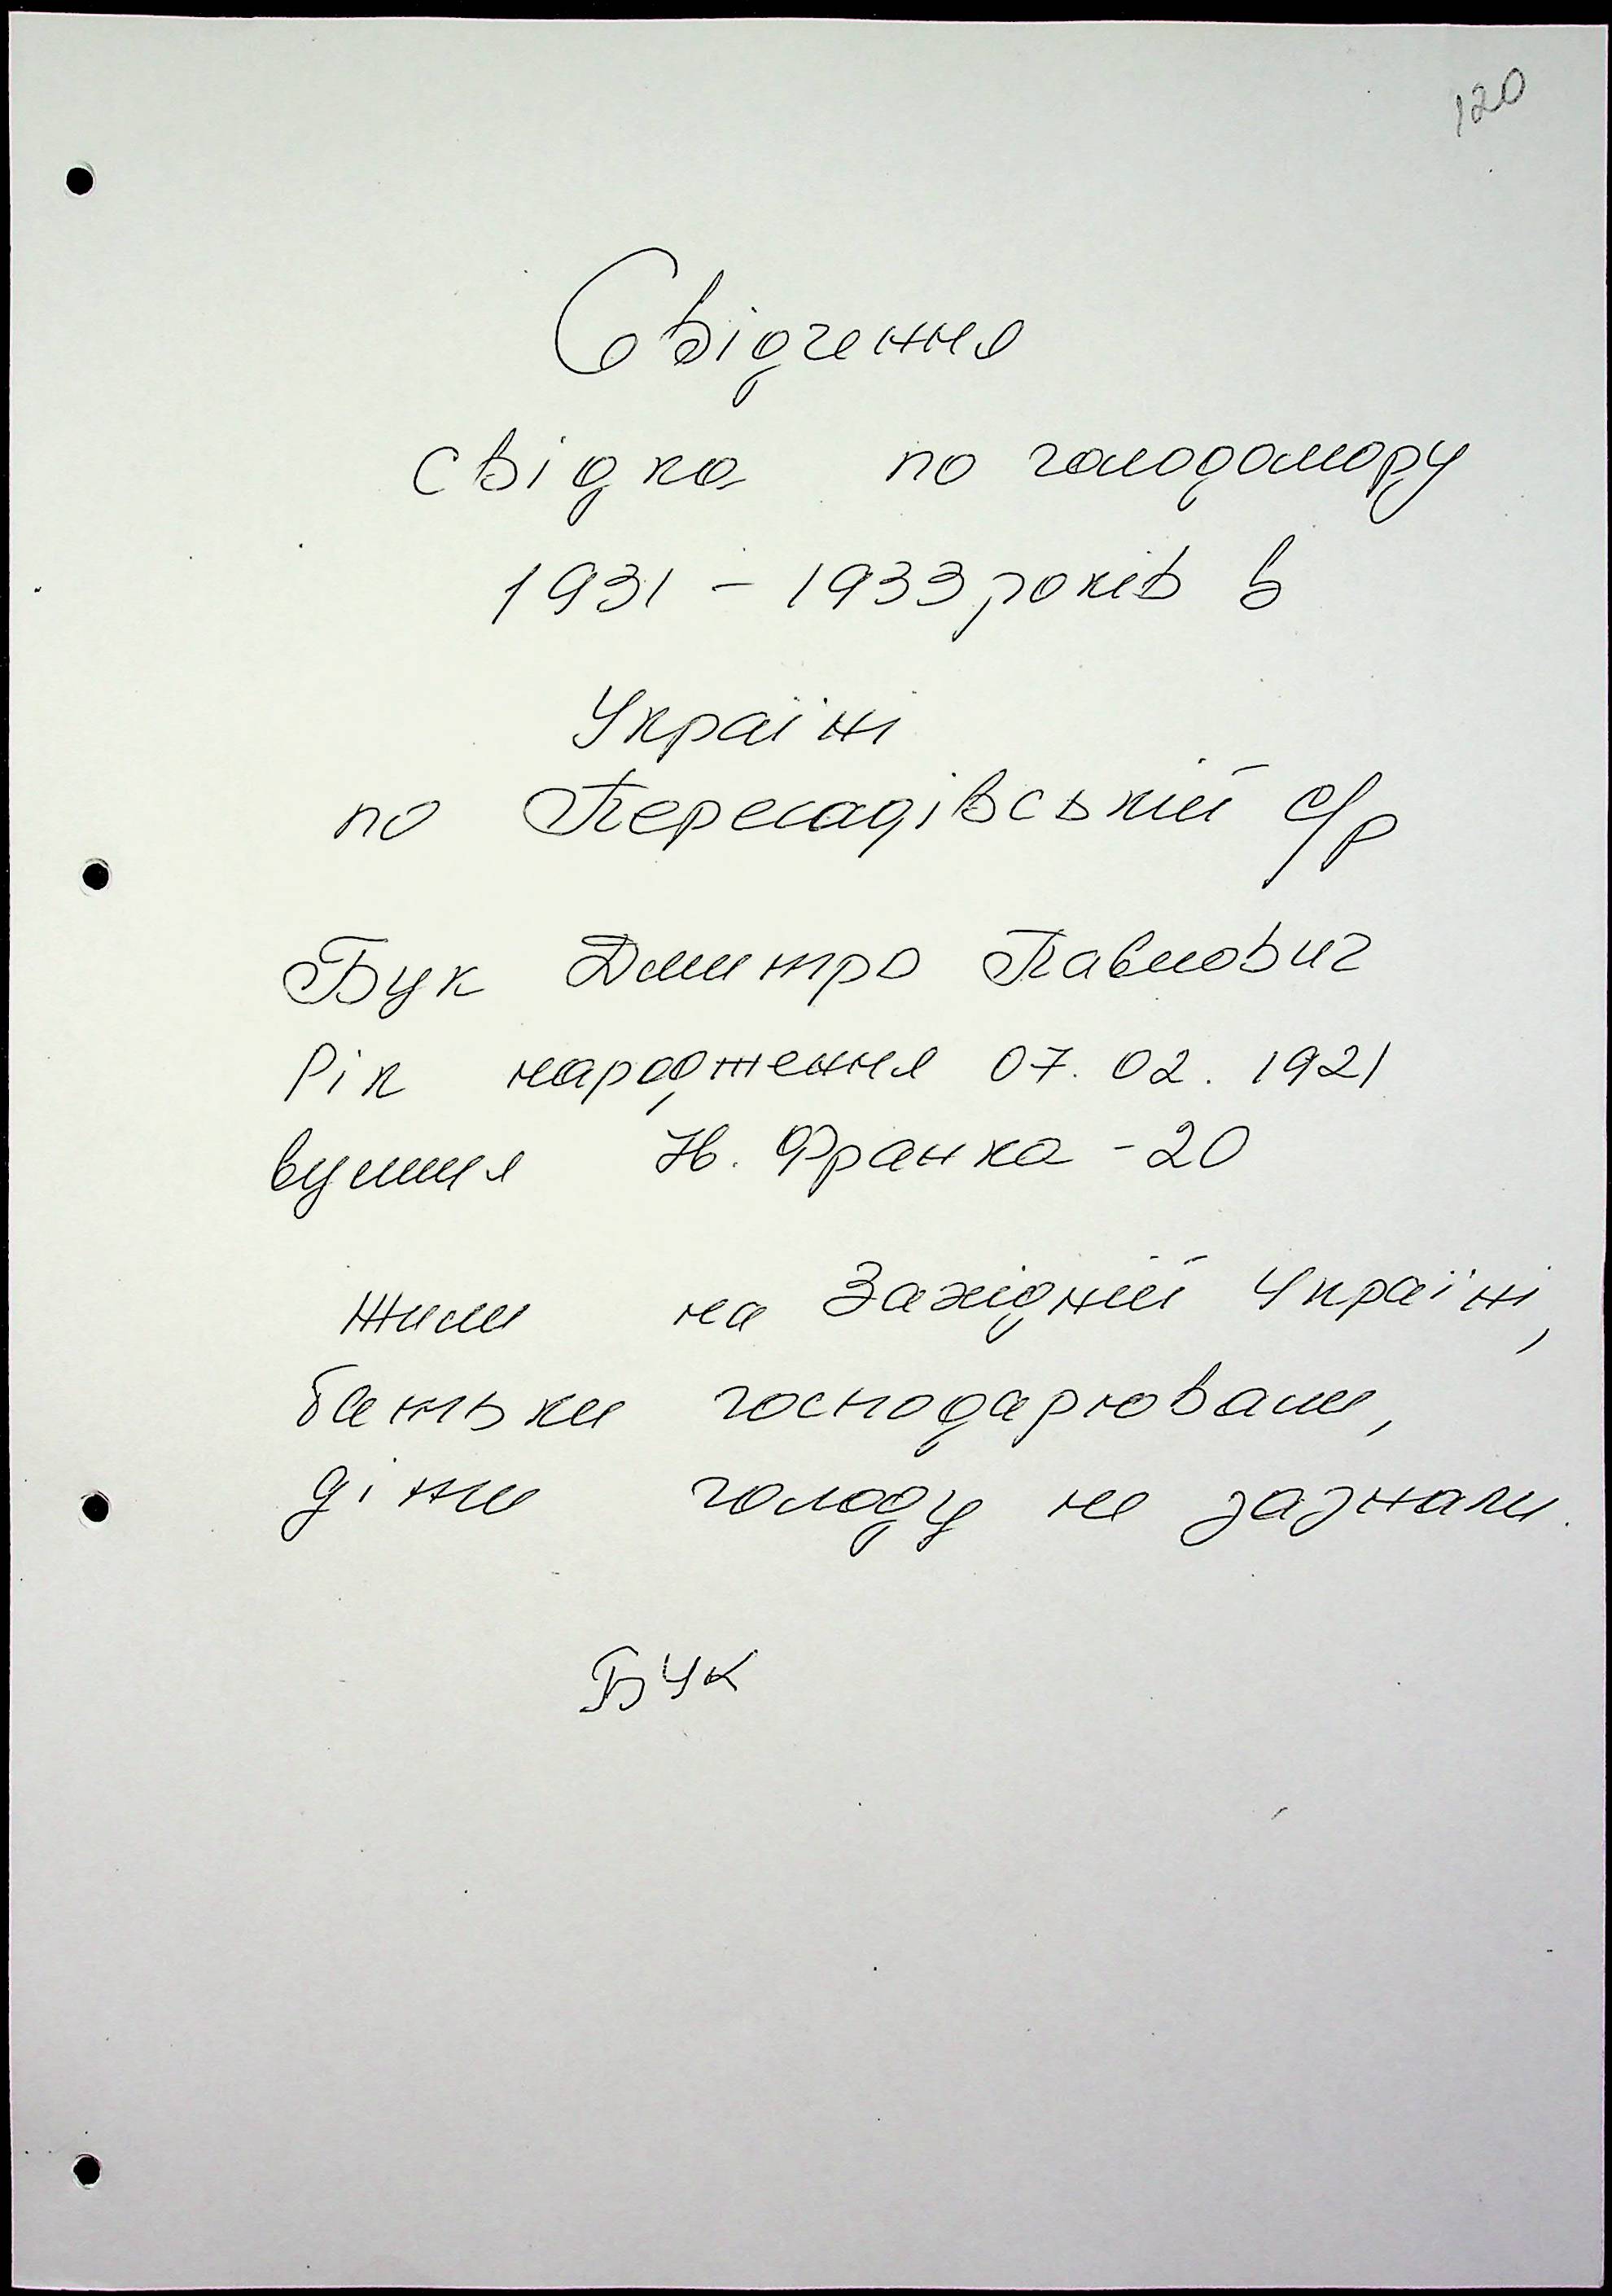 120
Свідчення
свідка по голодомору
1931 - 1933 років в
Україні
по Пересадівській с/р
Бук Дмитро Павлович
Рік народження 07. 02. 1921
вулиця Ів. Франка - 20
Жили на Західній Україні,
батьки господарювали,
діти голоду не зазнали.
Бук